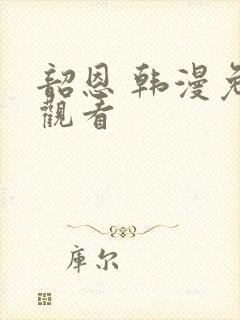 韶恩 韩漫免
觀看
库尔